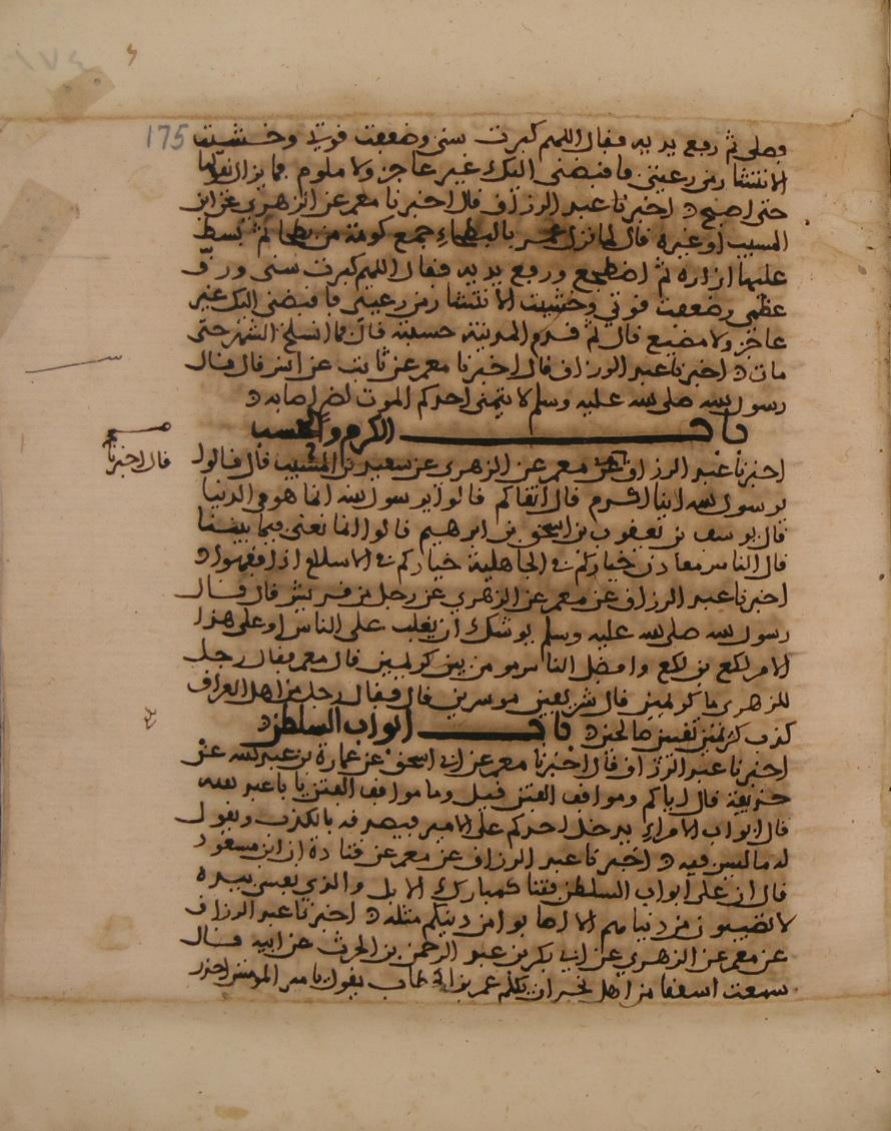 175
وصلى ثم رفع يديه فقال اللهم كبرت سني وضعفت قوتي وخشيت
الانتشار من رعيتي فاقبضني اليك غير عاجز ولا ملوم فما يزال يقولها
حتى اصبح اخبرنا عبد الرزاق قال اخبرنا معمر عن الزهري عن ابن
المسيب او غيره قال لما نزل عمر بالبطحاء جمع كومة من بطحا ثم بسط
عليها ازاره ثم اضطجع ورفع يديه فقال اللهم كبرت سني ورق
عظمي وضعفت قوتي وخشيت الانتشار من رعيتي فاقبضني اليك غير
عاجز ولا مضيع قال ثم قدم المدينة حسبته قال فما انسلخ الشهر حتى
مات اخبرنا عبد الرزاق قال اخبرنا معمر عن ثابت عن انس قال قال
رسول الله صلى الله عليه وسلم لا يتمنى احدكم الموت لضر اصابه
باب الكرم والحسب
اخبرنا عبد الرزاق عن معمر عن الزهري عن سعيد بن المسيب قال قالوا
صح
قال اخبرنا
يرسول الله اينا اكرم قال اتقاكم قالوا يرسول الله انما هو في الدنيا
قال يوسف بن يعقوب بن اسحق بن ابرهيم قالوا انما نعني فيما بيننا
قال الناس معادن خياركم في الجاهلية خياركم في الاسلام اذا فقهوا
اخبرنا عبد الرزاق عن معمر عن الزهري عن رجل من قريش قال قال
رسول الله صلى الله عليه وسلم يوشك ان يغلب على الناس او على هذا
الامر لكع بن لكع وافضل الناس مومن بين كريمين قال معمر فقال رجل
للزهري ما كريمين قال شريفين موسرين قال فقال رجل من اهل العراق
كذب كريمين تقيين صالحين باب ابواب السلطن
اخبرنا عبد الرزاق قال اخبرنا معمر عن ابي اسحق عن عمارة بن عبد الله عن
حذيفة قال اياكم ومواقف الفتن قيل وما مواقف الفتن يا با عبد الله
قال ابواب الامراء يدخل احدكم على الامير فيصدقه بالكذب ويقول
له ما ليس فيه اخبرنا عبد الرزاق عن معمر عن قتادة ان ابن مسعود
قال ان على ابواب السلطن فتنا كمبارك الابل والذي نفسي بيده
لا تصيبون من دنياهم الا اصابوا من دينكم مثله اخبرنا عبد الرزاق
عن معمر عن الزهري عن ابي بكر بن عبد الرحمن بن الحرث عن ابيه قال
سمعت اسقفا من اهل نجران يكلم عمر بن الخطاب يقول يا مير المومنين احذر